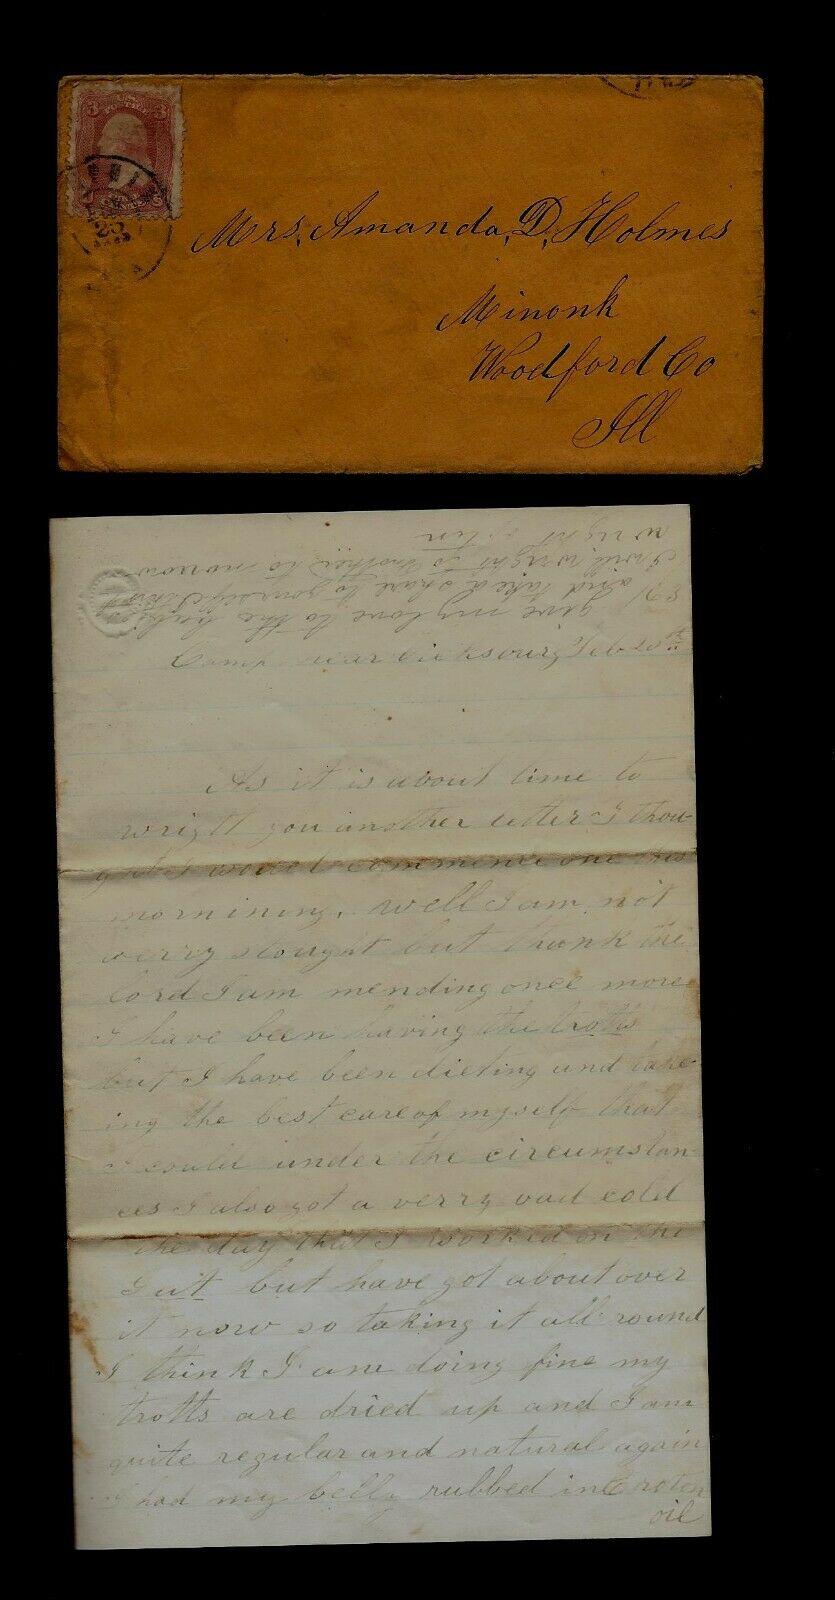 3 U.S. POSTAGE 3
25
Mrs. Amanda, D, Holmes
Minonk
Woodford Co
Ill
give my love to the
and take a share to yourself
I will wright to Mother to morrow
wright
Camp near vicksburg Feb 20th
As it is about time to
wright you another letter I thou-
ght I would commence one this
mornining. well I am not
verry stought but thank the
lord I am mending once more
I have been having the trotts
but I have been dieting and take-
ing the best care of myself that
I could under the circumstan-
ces I also got a verry bad cold
the day that I worked on the
Cut but have got about over
it now so taking it all round
I think I am doing fine my
trotts are dried up and I am
quite regular and natural again
I had my belly rubbed in Croten
oil